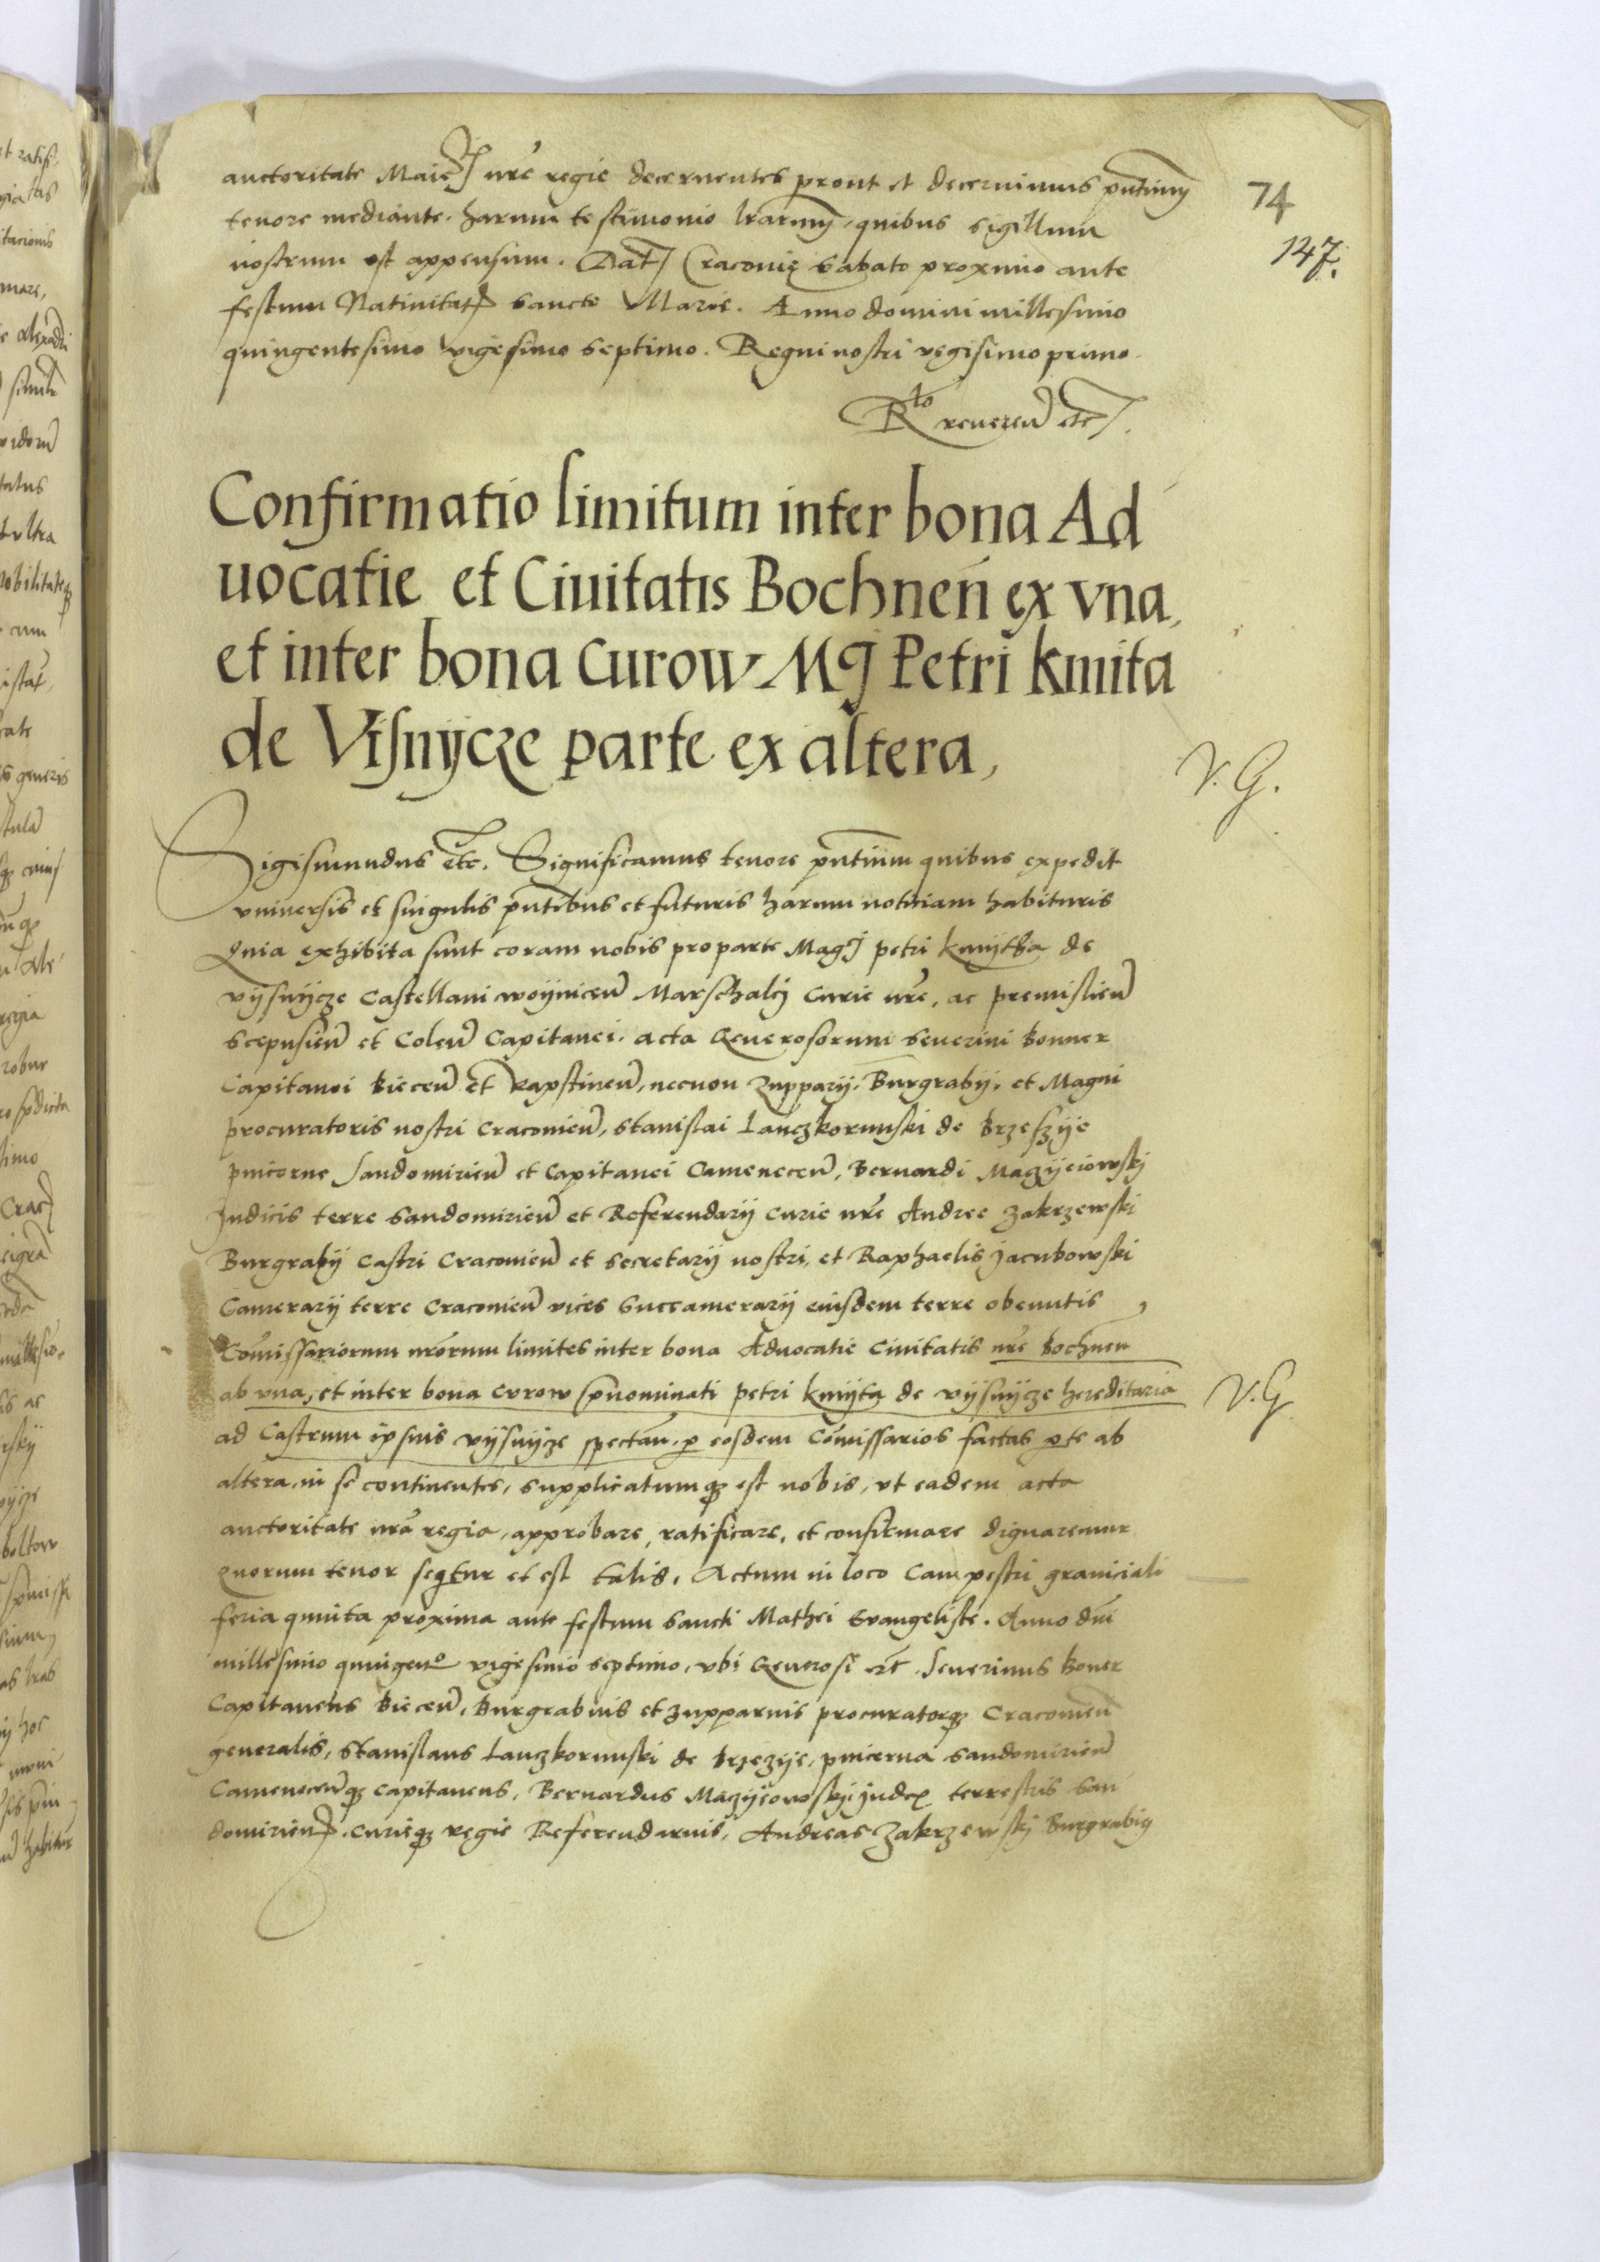 auctoritate Maie nrē regie decernentes prout et decernimus pntium
74
tenore mediante. harum testimonio lrarum, quibus sigillum
147.
nostrum est appensum. Dat Cracovię Sabato proximo ante
festum Nativitat sancte Marie. Anno domini millesimo
quingentesimo vigesimo septimo. Regni nostri vigisimo primo.
Rto reveren etc.
Confirmatio limitum inter bona Ad
uocatie et Ciuitatis Bochnen ex vna,
et inter bona Curow Mgj Petri kmita
de Visnijcze parte ex altera,
V. G.
Sigismundus etc. Significamus tenore pntium quibus expedit
vniversis et singulis pntibus et futuris harum notitiam habituris
Quia exhibita sunt coram nobis pro parte Magj petri kmijtha de
vijsnijcze Castellani woijnicen Marschalcj Curie nrē, ac premislien
scepusien et Colen Capitanei. acta Generosorum Severini Bonner
Capitanei Biecen et Rapstinen, necnon Zupparij, Burgrabij, et Magni
procuratoris nostri Cracovien, Stanislai Lanczkorunski de Brzeszije
pincerne Sandomirien et Capitanei Camenecen, Bernardi Maczijeiowskj
Judicis terre Sandomirien et Referendarij Curie nrē Andree Zakrzewski
Burgrabij Castri Cracovien et Secretarij nostri, et Raphaelis Jacubowski
Camerarij terre Cracovien vices Succamerarij eiusdem terre obeuntis,
Comissariorum nrorum limites inter bona Advocatie Civitatis nrē Bochnen
ab vna, et inter bona Curow prnominati petri kmijta de vijsnijcze hereditaria
V. G
ad Castrum ipsius vijsnijcze spectan. p eosdem Comissarios factas pte ab
altera, in se continentes, supplicatumq est nobis, vt eadem acta
auctoritate nrā regia, approbare, ratificare, et confirmare dignaremur
quorum tenor seqtur et est talis, Actum in loco Campestri graniciali
feria quinta proxima ante festum Sancti Mathei Evangeliste. Anno dni
millesimo quingento vigesimo septimo, vbi Generosi etc. Severinus Boner
Capitaneus Biecen, Burgrabius et Zupparius procuratorq Cracovien
generalis, Stanislaus Lanczkorunski de Brzezije, pincerna Sandomirien
Camenecenq Capitaneus, Bernardus Maczijeowskj Judex terrestris San
domirien. Curieq regie Referendarius, Andreas Zakrzewskj Burgrabig